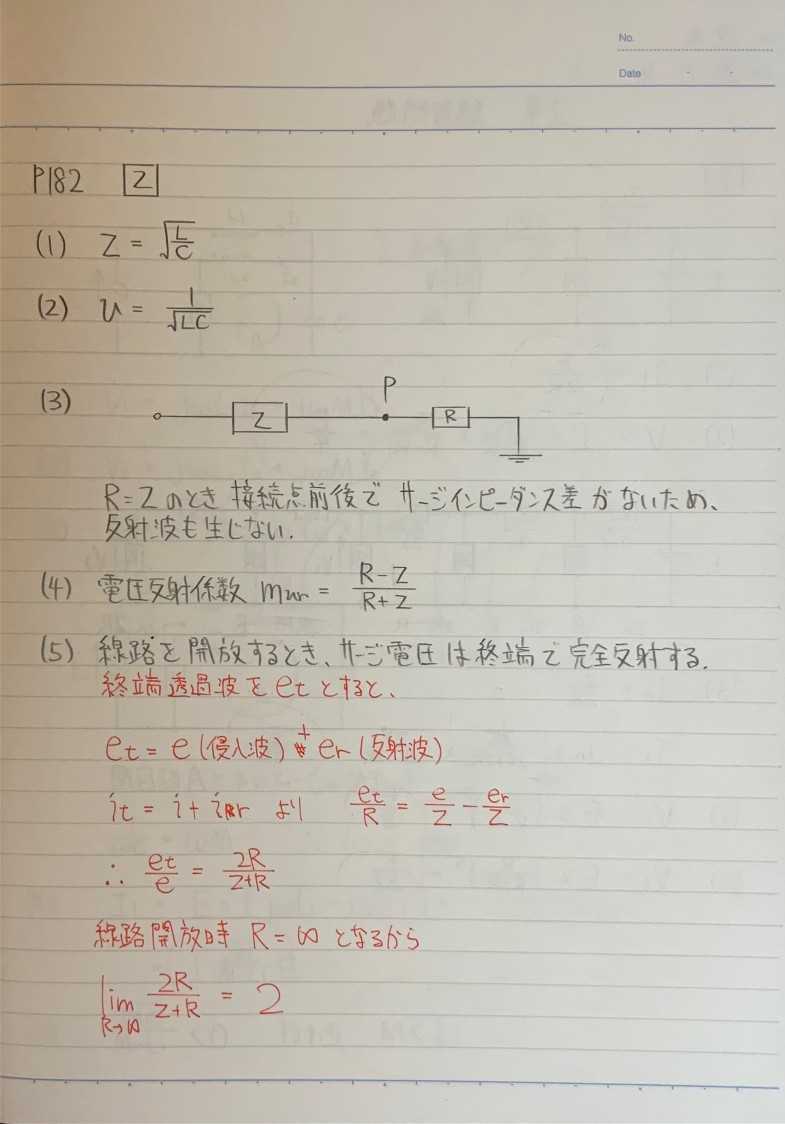 No.
Date
P182 2
(1) Z = √(L/C)
(2) u = 1/√(LC)
(3)
P
Z R
R=Zのとき 接続点前後で サージインピーダンス差がないため、
反射波も生じない.
(4) 電圧反射係数 mur = (R-Z)/(R+Z)
(5) 線路を開放するとき、サージ電圧は終端で完全反射する.
終端透過波をetとすると、
et = e(侵入波) + er(反射波)
it = i + ir より et/R = e/Z - er/Z
∴ et/e = 2R/(Z+R)
線路開放時 R=∞ となるから
lim R→∞ 2R/(Z+R) = 2